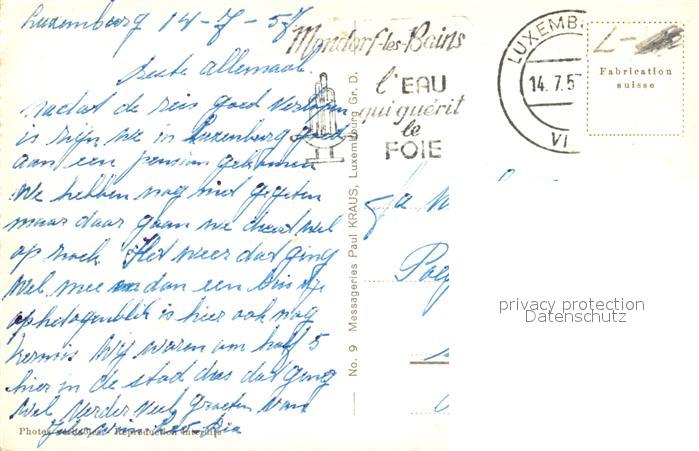 Luxemburg 14-7-57
Beste allemaal.
nadat de reis goed verlopen
is zijn we in Luxemburg goed
aan een pension gekomen
We hebben nog niet gegeten
maar daar gaan we direct wel
op zoek. Het weer dat ging
wel mee dan een
ophetogenblik is hier ook nog
kermis Wij waren om half 5
hier in de stad dus dat ging
wel Verder veel groeten van
Mondorf-les-Bains
l'EAU
qui guérit
le
FOIE
LUXEMB
14.7.5
VI
Fabrication
suisse
No. 9 Messageries Paul KRAUS, Luxembourg Gr. D.
privacy protection
Datenschutz
Photos véritables. Reproduction interdite